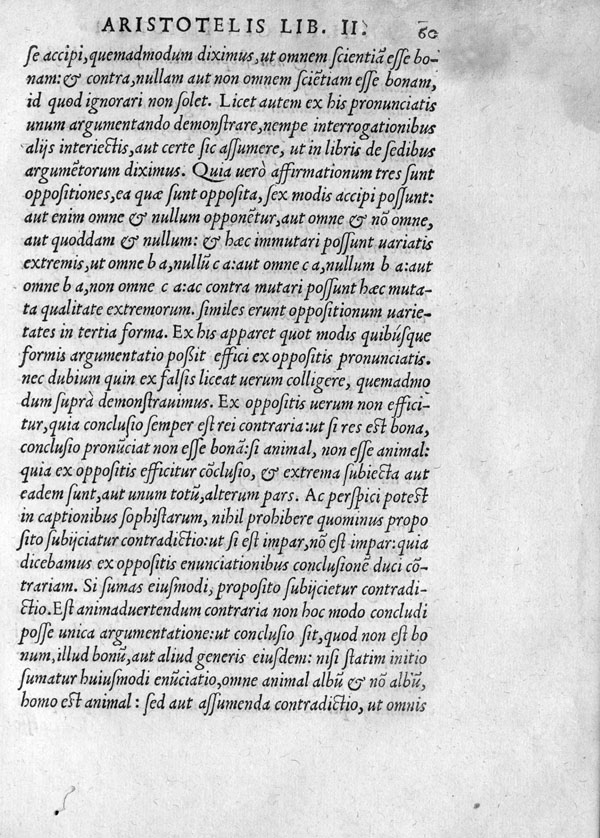 ARISTOTELIS LIB. II. 60
se accipi, quemadmodum diximus, ut omnem scientiã esse bo-
nam: & contra, nullam aut non omnem sciẽtiam esse bonam,
id quod ignorari non solet. Licet autem ex his pronunciatis
unum argumentando demonstrare, nempe interrogationibus
alijs interiectis, aut certe sic assumere, ut in libris de sedibus
argumẽtorum diximus. Quia uerò affirmationum tres sunt
oppositiones, ea quæ sunt opposita, sex modis accipi possunt:
aut enim omne & nullum opponẽtur, aut omne & nõ omne,
aut quoddam & nullum: & hæc immutari possunt uariatis
extremis, ut omne b a, nullũ c a: aut omne c a, nullum b a: aut
omne b a, non omne c a: ac contra mutari possunt hæc muta-
ta qualitate extremorum. similes erunt oppositionum uarie-
tates in tertia forma. Ex his apparet quot modis quibúsque
formis argumentatio poßit effici ex oppositis pronunciatis.
nec dubium quin ex falsis liceat uerum colligere, quemadmo
dum suprà demonstrauimus. Ex oppositis uerum non effici-
tur, quia conclusio semper est rei contraria: ut si res est bona,
conclusio pronũciat non esse bonã: si animal, non esse animal:
quia ex oppositis efficitur cõclusio, & extrema subiecta aut
eadem sunt, aut unum totũ, alterum pars. Ac perspici potest
in captionibus sophistarum, nihil prohibere quominus propo
sito subijciatur contradictio: ut si est impar, nõ est impar: quia
dicebamus ex oppositis enunciationibus conclusionẽ duci cõ-
trariam. Si sumas eiusmodi, proposito subijcietur contradi-
ctio. Est animaduertendum contraria non hoc modo concludi
posse unica argumentatione: ut conclusio sit, quod non est bo
num, illud bonũ, aut aliud generis eiusdem: nisi statim initio
sumatur huiusmodi enũciatio, omne animal albũ & nõ albũ,
homo est animal: sed aut assumenda contradictio, ut omnis